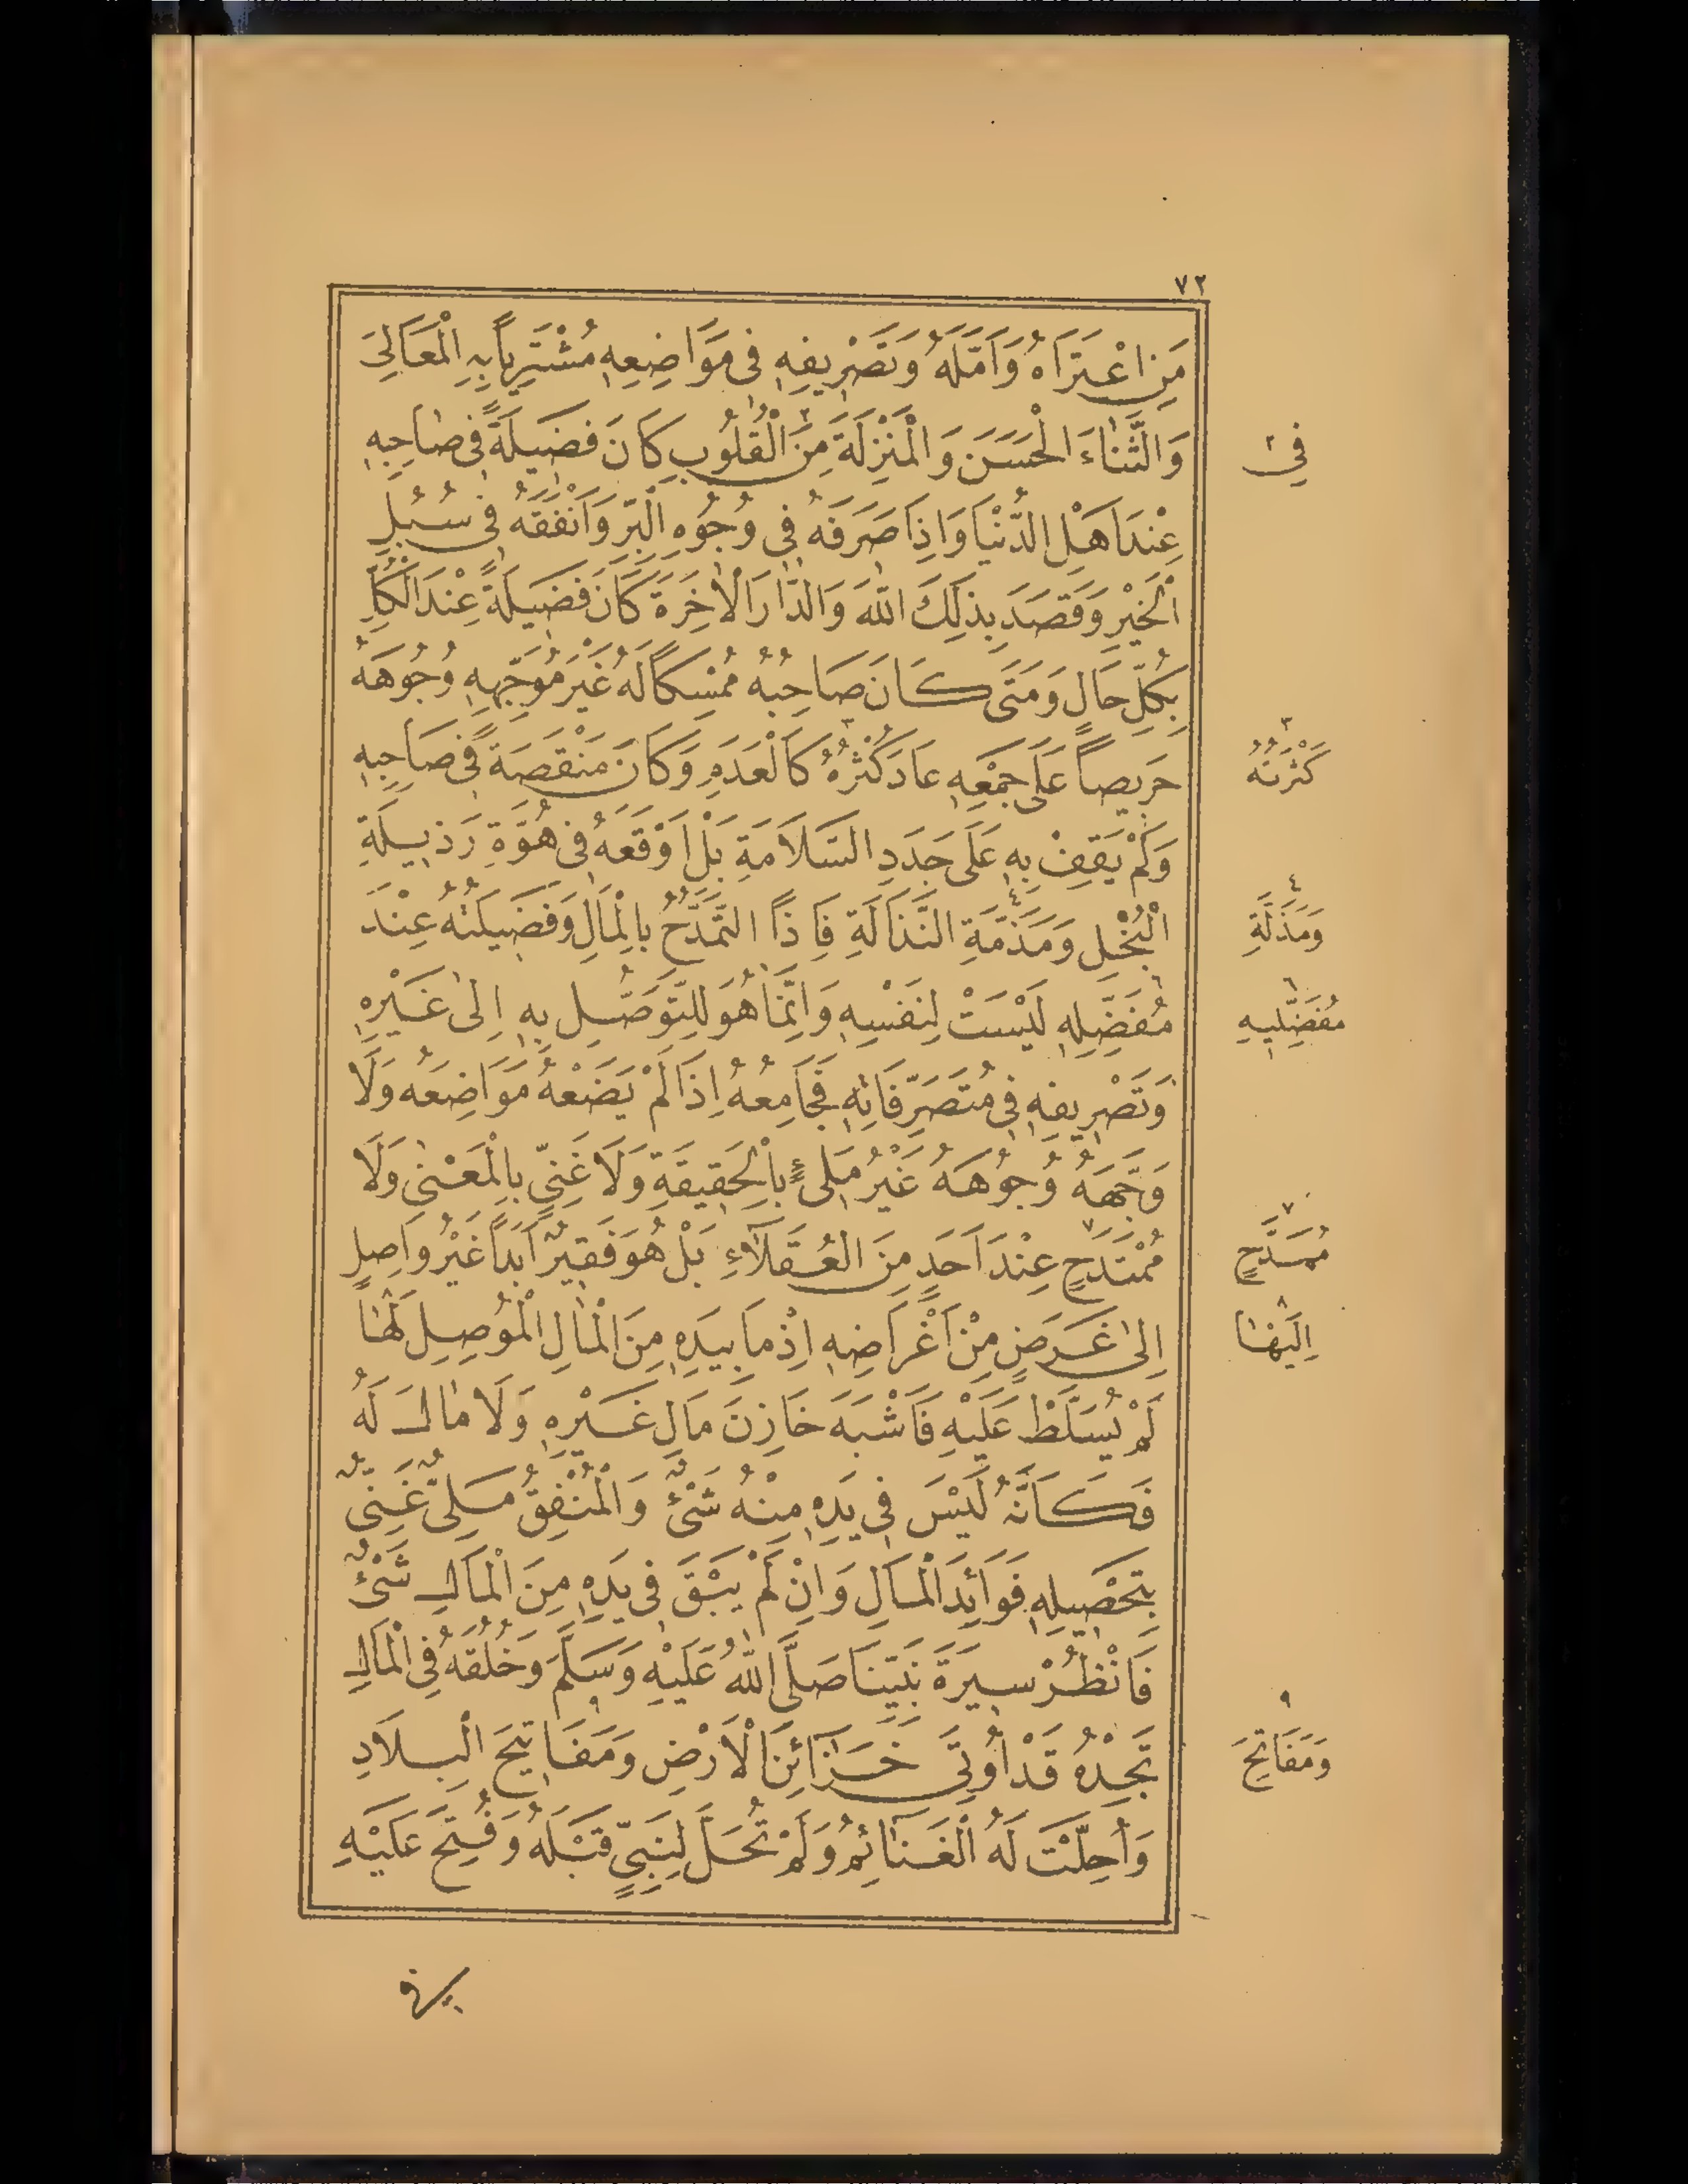 ٧٢
مَنِ اعْتَرَاهُ وَاَمَّلَهُ وَتَصْرِيفِهِ فِى مَوَاضِعِهِ مُشْتَرِياً بِهِ الْمَعَالِىَ
وَالثَّنَاءَ الْحَسَنَ وَالْمَنْزِلَةَ مِنَ ٢ الْقُلُوبِ كَانَ فَضِيلَةً فِى صَاحِبِهِ
٢ فِى
عِنْدَ اَهْلِ الدُّنْيَا وَاِذَا صَرَفَهُ فِى وُجُوهِ الْبِرِّ وَاَنْفَقَهُ فِى سُبُلِ
الْخَيْرِ وَقَصَدَ بِذٰلِكَ اللّٰهَ وَالدَّارَ الْاٰخِرَةَ كَانَ فَضِيلَةً عِنْدَ الْكُلِّ
بِكُلِّ حَالٍ وَمَتَى كَانَ صَاحِبُهُ مُمْسِكاً لَهُ غَيْرَ مُوَجِّهِهِ وُجُوهَهُ
حَرِيصاً عَلَى جَمْعِهِ عَادَ كُثْرُهُ ٣ كَالْعَدَمِ وَكَانَ مَنْقَصَةً فِى صَاحِبِهِ
٣ كَثْرَتُهُ
وَلَمْ يَقِفْ بِهِ عَلَى جَدَدِ السَّلَامَةِ بَلْ اَوْقَعَهُ فِى هُوَّةِ رَذِيلَةِ
الْبُخْلِ وَمَذَمَّةِ ٤ النَّذَالَةِ فَاِذاً التَّمَدُّحُ بِالْمَالِ وَفَضِيلَتُهُ عِنْدَ
٤ وَمَذَلَّةِ
مُفَضِّلِهِ ٦ لَيْسَتْ لِنَفْسِهِ وَاِنَّمَا هُوَ لِلتَّوَصُّلِ بِهِ اِلٰى غَيْرِهِ
٦ مُفَضِّلِيهِ
وَتَصْرِيفِهِ فِى مُتَصَرَّفَاتِهِ فَجَامِعُهُ اِذَا لَمْ يَضَعْهُ مَوَاضِعَهُ وَلَا
وَجَّهَهُ وُجُوهَهُ غَيْرُ مَلِىءٍ بِالْحَقِيقَةِ وَلَا غَنِىٍّ بِالْمَعْنٰى وَلَا
مُمْتَدَحٍ ٧ عِنْدَ اَحَدٍ مِنَ الْعُقَلَاءِ بَلْ هُوَ فَقِيرٌ اَبَداً غَيْرُ وَاصِلٍ
٧ مُمَدَّحٍ
اِلٰى غَرَضٍ مِنْ اَغْرَاضِهِ اِذْ مَا بِيَدِهِ مِنَ الْمَالِ الْمُوصِلِ لَهَا ٨
٨ اِلَيْهَا
لَمْ يُسَلَّطْ عَلَيْهِ فَاَشْبَهَ خَازِنَ مَالِ غَيْرِهِ وَلَا مَالَ لَهُ
فَكَاَنَّهُ لَيْسَ فِى يَدِهِ مِنْهُ شَىْءٌ وَالْمُنْفِقُ مَلِىٌّ غَنِىٌّ
بِتَحْصِيلِهِ فَوَائِدَ الْمَالِ وَاِنْ لَمْ يَبْقَ فِى يَدِهِ مِنَ الْمَالِ شَىْءٌ
فَانْظُرْ سِيرَةَ نَبِيِّنَا صَلَّى اللّٰهُ عَلَيْهِ وَسَلَّمَ وَخُلُقَهُ فِى الْمَالِ
تَجِدْهُ قَدْ اُوتِىَ خَزَائِنَ الْاَرْضِ وَمَفَاتِيحَ ٩ الْبِلَادِ
٩ وَمَفَاتِحَ
وَاُحِلَّتْ لَهُ الْغَنَائِمُ وَلَمْ تُحَلَّ لِنَبِىٍّ قَبْلَهُ وَفُتِحَ عَلَيْهِ